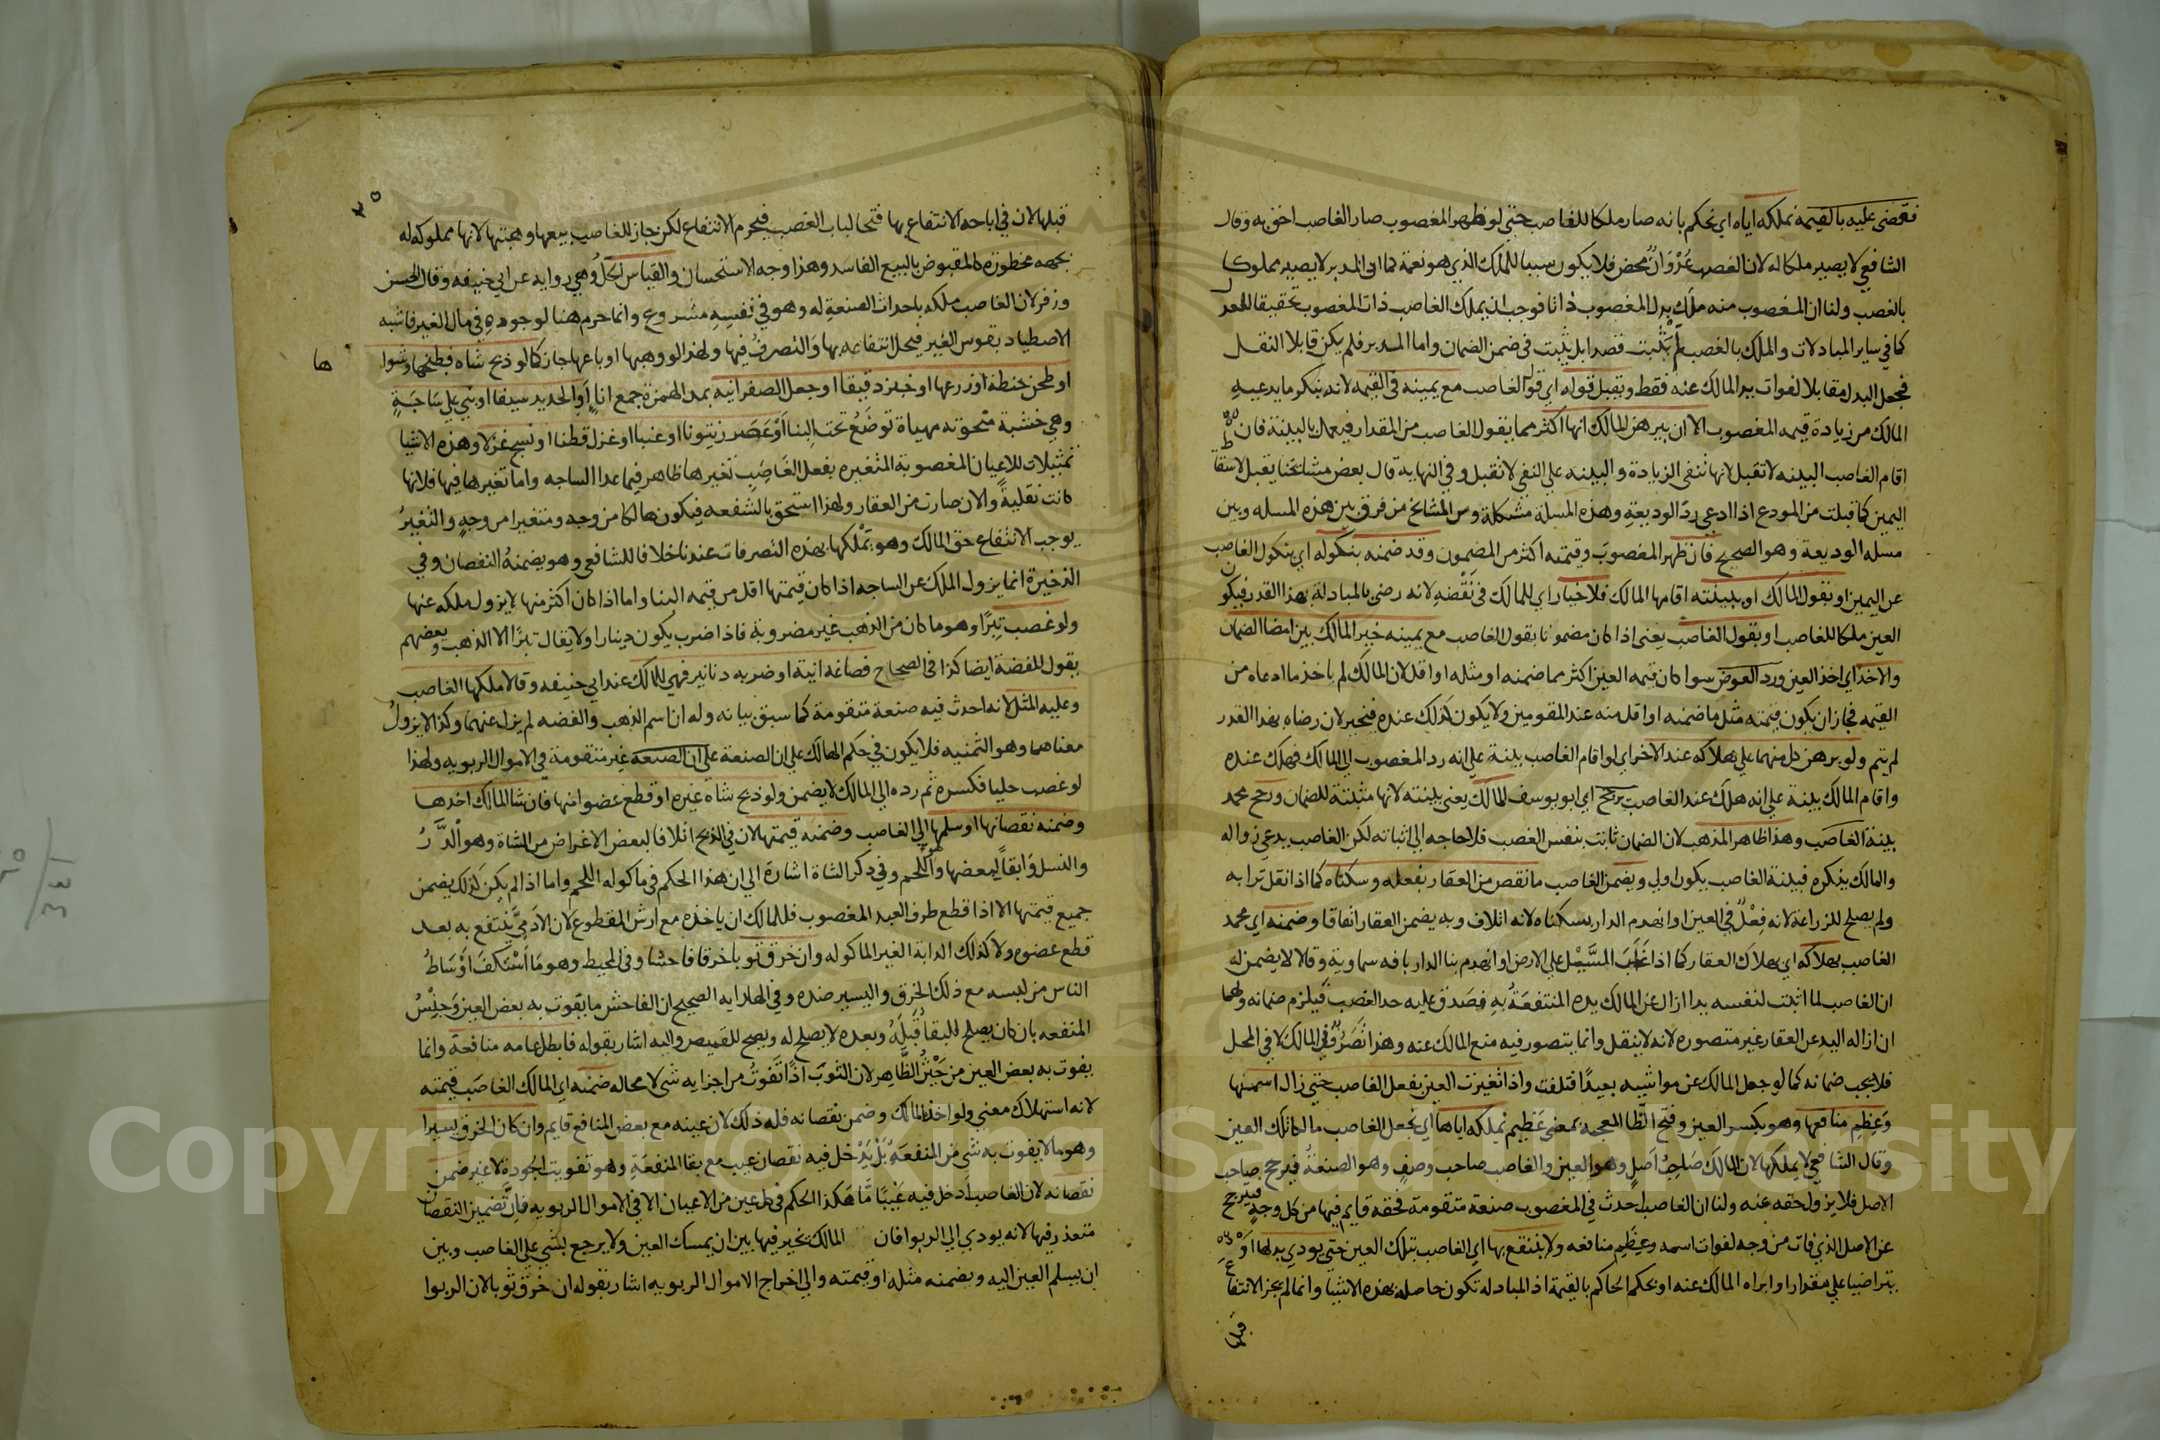 فقضى عليه بالقيمة نملكه اياه اي نحكم بانه صار ملكا للغاصب حتى لو ظهر المغصوب صار الغاصب احق به وقال
الشافعي لا يصير ملكا له لان الغصب عُدْوَانٌ محض فلا يكون سببا للملك الذي هو نعمة كما في المدبر لا يصير مملوكا
بالغصب ولنا ان المغصوب منه ملَك بدل المغصوب ذاتا فوجب ان يملك الغاصب ذات المغصوب تحقيقا للعدل
كما في ساير المبادلات والملك بالغصب لم يَثْبُت قصدا بل يثبت في ضمن الضمان واما المدبر فلم يكن قابلا للنقل
فجعل البدل مقابلا لفوات يد المالك عنه فقط ويقبل قوله اي قول الغاصب مع يمينه في القيمه لانه ينكر ما يدعيه
المالك من زيادة قيمه المغصوب الا ان يبرهن المالك انها اكثر مما يقول الغاصب من المقدار فيعمل بالبينة فان
اقام الغاصب البينه لا تقبل لانها تنفي الزيادة والبينه على النفي لا تقبل وفي النهايه قال بعض مشايخنا يقبل لاسقاط
اليمين كما قبلت من المودع اذا ادعى ردّ الوديعةِ وهذه المسلة مشكلة ومن المشايخ من فرق بين هذه المسله وبين
مسله الوديعة وهو الصحيح فان ظهر المغصوبُ وقيمته اكثر من المضمون وقد ضمنه بنكوله اي بنكول الغاصب
عن اليمين او بقول المالك او ببينته اقامها المالك فلا خيار اي للمالك في نَقْضِهِ لانه رضي بالمبادلةِ بهذا القدر فيكون
العين ملكا للغاصب او بقول الغاصب يعني اذا كان مضمونا بقول الغاصب مع يمينه خير المالك بين امضا الضمان
والاخذ اي اخذ العين ورد العوض سوا كان قيمه العين اكثر مما ضمنه او مثله او اقل لان المالك لم ياخذ ما ادعاه من
القيمه فجاز ان يكون قيمته مثل ما ضمنه او اقل منه عند المقومين ولا يكون كذلك عنده فيخير لان رضاه بهذا القدر
لم يتم ولو برهن كل منهما على هلاكه عند الاخر اي لو اقام الغاصب بينة على انه رد المغصوب الى المالك فهلك عنده
واقام المالك بينة على انه هلك عند الغاصب يرجح اي ابو يوسف لمالك يعني بينته لانها مثبتة للضمان ورجح محمد
بينة الغاصب وهذا ظاهر المذهب لان الضمان ثابت بنفس الغصب فلا حاجه الى اثباته لكن الغاصب يدعي زواله
والمالك ينكره فبينة الغاصب يكون اولى ويضمن الغاصب ما نقص من العقار بفعله وسكناه كما اذا نقل ترابه
ولم يصلح للزراعة لانه فِعْلٌ في العين او انهدم الدار بسكناه لانه اتلاف وبه يضمن العقار اتفاقا وضمنه اي محمد
الغاصب بهلاكه اي بهلاك العقار كما اذا غَلَبَ السَّيْلُ على الارض او انهدم بنا الدار بافه سماوية وقالا لا يضمن له
ان الغاصب لما اثبت لنفسه يدا ازال عن المالك يده المنتفعةُ بهِ فصَدق عليه حد الغصب فيلزم ضمانه ولهما
ان ازاله اليد عن العقار غير متصوره لانه لا ينقل وانما يتصور فيه منع المالك عنه وهذا تَصَرُّفٌ في المالك لا في المحل
فلا يجب ضمانه كما لو جعل المالك عن مواشيه بعيدًا فتلفت واذا تغيرت العين بفعل الغاصب حتى زال اسمها
وَعِظَم منافعها وهو بكسر العين وفتح الظَّا المعجمه بمعنى عَظيم نملكه اياها اي نجعل الغاصب مالكا لتلك العين
وقال الشافعي لا يملكها لان المالك صَاحِبُ اَصلٍ وهو العين والغاصب صاحب وصفٍ وهو الصنعةُ فيرجح صاحب
الاصل فلا يزول حقه عنه ولنا ان الغاصب احدث في المغصوب صنعة متقومة فحقه قايم فيها من كل وجهٍ فيترجح
عن الاصل الذي فات من وجه لفوات اسمه وعِظَمِ منافعه ولا ينتفع بها اي الغاصب بتلك العين حتى يودي بدلها او
يتراضيا على مقدار او ابراه المالك عنه او بحكم الحاكم بالقيمة اذ المبادله تكون حاصله بهذه الاشيا وانما لم يجز الانتفاع
قبلها
قبلها لان في اباحه الانتفاع بها فتحا لباب الغصب فيحرم الانتفاع لكن جاز للغاصب بيعها وهبتها لانها مملوكه له
بجهه محظوره كالمقبوض بالبيع الفاسد وهذا وجه الاستحسان والقياس الحَلُّ وهي رواية عن ابي حنيفه وقال الحسن
وزفر لان الغاصب ملكه باحداث الصنعةِ له وهو في نفسِهِ مشروع وانما حرم هنا لوجودهِ في مال الغير فاشبه
الاصطياد بقوس الغير فيحل انتفاعه بها والتصرفُ فيها ولهذا لو وهبها او باعها جاز كما لو ذبح شاه فطبخها او شوا
ها
او طحن حنطة او زرعها او خبز دقيقا او جعل الصفر انيه بمد الهمزة جمع اناءٍ او الحديد سيفا او بني على سَاجَةٍ
وهي خشبة منحوته مهياة توضَعُ تحت البنا اَوْ عَصَر زيتونا او عنبا او غزل قطنا او نسج غزلا وهذه الاشيا
تمثيلات للاعيان المغصوبة المتغيره بفعل الغَاصِبِ تغيرها ظاهر فيما عدا الساجه واما تغيرها فيها فلانها
كانت نقليةً والان صارت من العقار ولهذا استحق بالشفعه فيكون هالكا من وجه ومتغيرا من وجهٍ والتغييرُ
يوجب الانتفاع حق المالك وهو تَمْلكها بهذه التصرفات عندنا خلافا للشافعي وهو يضمنهُ النقصان وفي
الذخيرة انما يزول الملك عن الساجه اذا كان قيمتها اقل من قيمه البنا واما اذا كان اكثر منها لا يزول ملكه عنها
ولو غصب تِبْرًا وهو ما كان من الذهب غير مضروبة فاذا ضرب يكون دينارا ولا يقال تبرًا الا الذهب وبعضهم
يقول للفضة ايضا كذا في الصحاح فصاغه انية او ضربه دنانير فهي للمالك عند ابي حنيفه وقالا ملكها الغاصب
وعليه المثل لانه احدث فيه صنعة متقومة كما سبق بيانه وله ان اسم الذهب والفضه لم يزل عنهما وكذا لا يزولُ
معناهما وهو الثمنيه فلا يكون في حكم الهالك على ان الصنعة غير متقومة في الاموال الربويه ولهذا
لو غصب حليا فكسره ثم رده الى المالك لا يضمن ولو ذبح شاه غيره او قطع عضوا منها فان شا المالك اخذها
وضمنه نقصانها او سلمها الى الغاصب وضمنه قيمتها لان في الذبح اتلافا لبعض الاغراض من الشاة وهو الدَّرُّ
والنسل وَابقاً لبعضها وهو اللحم وفي ذكر الشاة اشارة الى ان هذا الحكم في ماكوله اللحم واما اذا لم يكن كذلك يضمن
جميع قيمتها الا اذا قطع طرف العبد المغصوب فللمالك ان ياخذه مع ارش المقطوع لان الادَمِيَّ يَنْتفع به بعد
قطع عضوه ولا كذلك الدابة الغير الماكوله وان خرق ثوبا خرقا فاحشا وفي المحيط وهو مَا اسْتَنكفَ اوْسَاطُ
الناس من لبسه مع ذلك الخرق واليسير ضده وفي الهدايه الصحيح ان الفاحش ما يفوت به بعض العين وَجِنْسُ
المنفعه بان كان يصلح للبقا قَبْلَهُ وبعده لا يصلح له ويصح للقميص واليه اشار بقوله فابطل عامه منافعة وانما
يفوت به بعض العين من حَيْثُ الظَّاهِر لان الثوبَ اذا تَفوتُ من اجزايه شي لا محاله ضمنه اي المالك الغاصب قيمته
لانه استهلاك معنى ولو اخذ المالك وضمن نقصانه فله ذلك لان عينه مع بعض المنافع قايم وان كان الخرق يسيرا
وهو ما لا يفوت به شي من المنفعَةِ بَلْ يَدْخل فيه نقصان عيب مع بقا المنفعةِ وهو تفويت الجودة لا غير ضمن
نقصانه لان الغاصب اَدخل فيه عَيْبًا مَّا هَكذا الحكم في كل عين من الاعيان الا في الاموال الربويهِ فاِنَّ تَضمين النقصان
متعذر فيها لانه يودي الى الربوا فان المالك يخير فيها بين ان يمسك العين ولا يرجع بشي على الغاصب وبين
ان يسلم العين اليه ويضمنه مثله او قيمته والى اخراج الاموال الربويه اشار بقوله ان خرق ثوبا لان الربوا